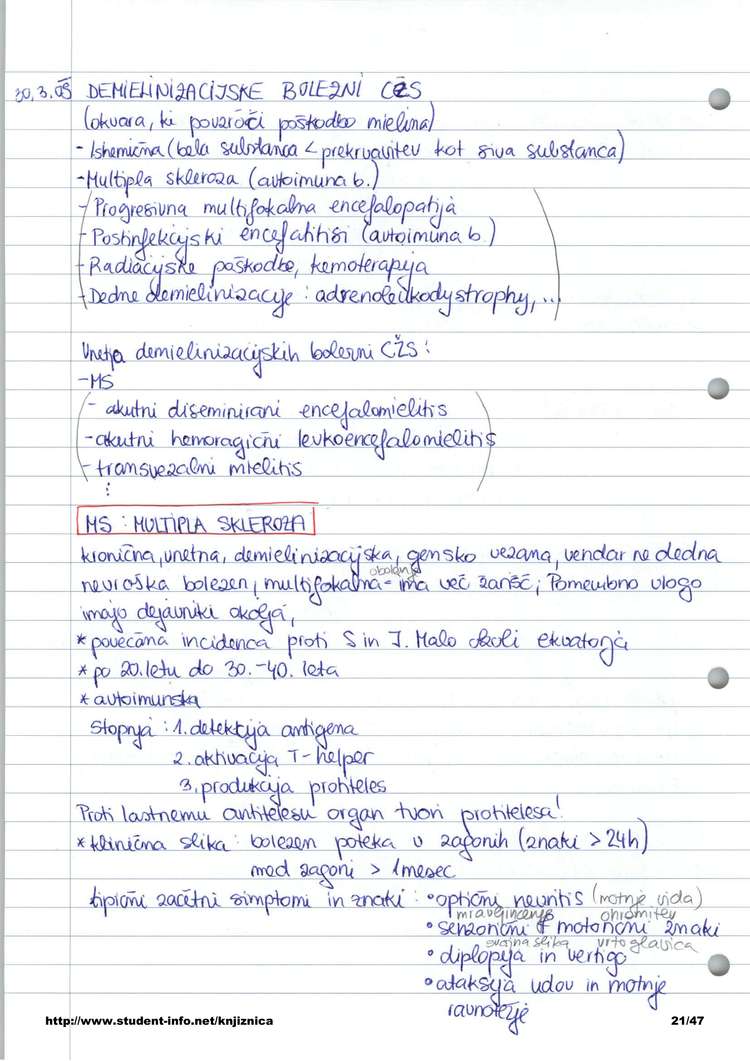 30.3.05 DEMIELINIZACIJSKE BOLEZNI CŽS
(okvara, ki povzroči poškodbo mielina)
- Ishemična (bela substanca < prekrvavitev kot siva substanca)
- Multipla skleroza (avtoimuna b.)
- Progresivna multifokalna encefalopatija
- Postinfekcijski encefalitisi (avtoimuna b.)
- Radiacijske poškodbe, kemoterapija
- Dedne demielinizacije : adrenoleukodystrophy, ...
Vnetja demielinizacijskih bolezni CŽS :
- MS
- akutni diseminirani encefalomielitis
- akutni hemoragični levkoencefalomielitis
- transverzalni mielitis
⋮
MS : MULTIPLA SKLEROZA
kronična, vnetna, demielinizacijska, gensko vezana, vendar ne dedna
nevrološka bolezen, multifokalna = ima več žarišč; Pomembno vlogo
obolenj
imajo dejavniki okolja,
* povečana incidenca proti S in J. Malo okoli ekvatorja
* po 20. letu do 30.-40. leta
* avtoimunska
Stopnja : 1. detekcija antigena
2. aktivacija T-helper
3. produkcija protiteles
Proti lastnemu antitelesu organ tvori protitelesa!
* klinična slika : bolezen poteka v zagonih (znaki > 24h)
med zagoni > 1 mesec
tipični začetni simptomi in znaki : • optični nevritis (motnje vida)
mravljinčenje ohromitev
• senzorični & motorični znaki
dvojna slika vrtoglavica
• diplopija in vertigo
• ataksija udov in motnje
ravnotežje
http://www.student-info.net/knjiznica 21/47